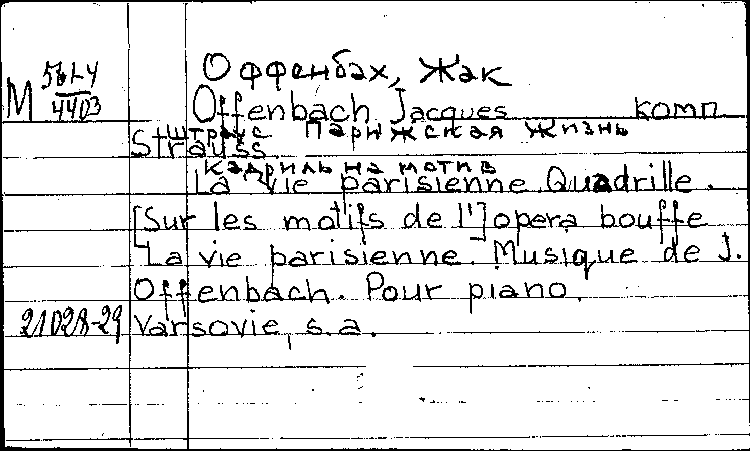 Оффенбах, Жак
М 561-4
4403
Offenbach Jacques комп
Штраус Парижская жизнь
Strauss
Кадриль на мотив
La vie parisienne. Quadrille.
[Sur les motifs de l'] opera bouffe
"La vie parisienne". Musique de J.
Offenbach. Pour piano.
21028-29 Varsovie, s.a.